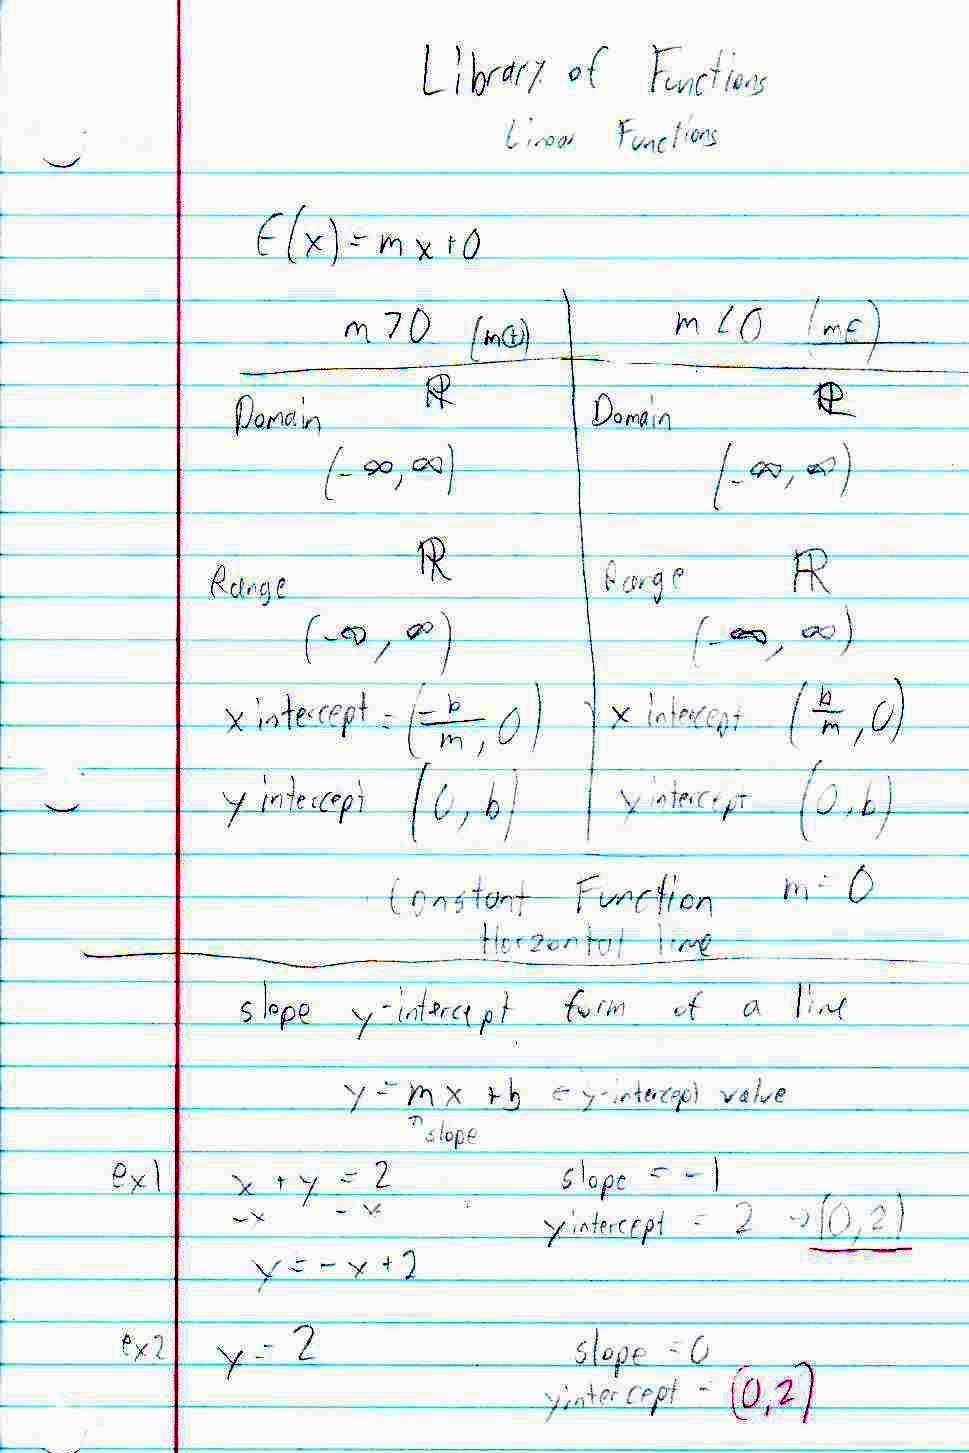 Library of Functions
Linear Functions
f(x) = mx + 0
m > 0 (m⊕) m < 0
Domain ℝ Domain ℝ
(-∞, ∞) (-∞, ∞)
Range ℝ Range ℝ
(-∞, ∞) (-∞, ∞)
x intercept = (-b/m, 0) x intercept (b/m, 0)
y intercept (0, b) y intercept (0, b)
Constant Function m = 0
Horzontal line
slope y-intercept form of a line
y = mx + b ← y-intercept value
↑ slope
ex1 x + y = 2 slope = -1
-x -x y intercept = 2 → (0, 2)
y = -x + 2
ex2 y = 2 slope = 0
y intercept = (0, 2)